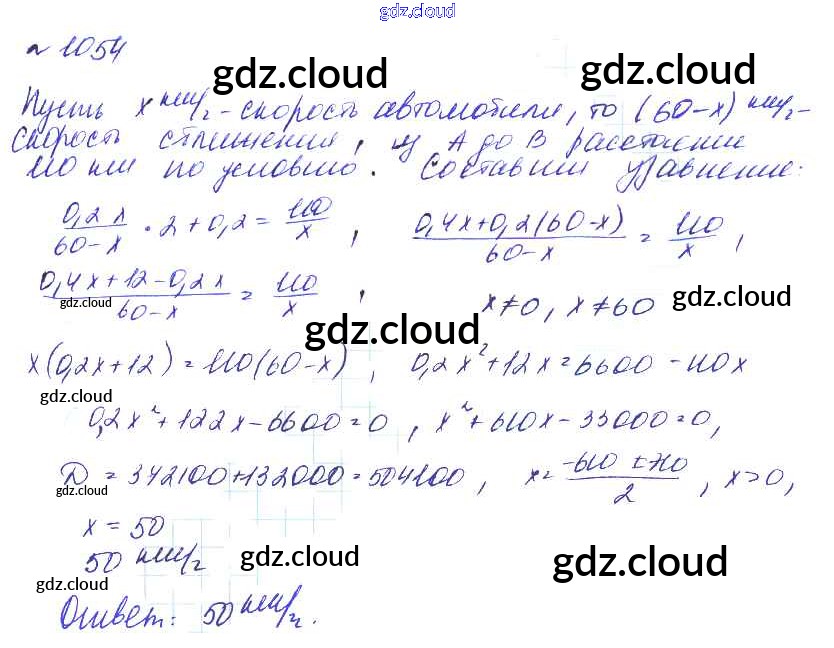 gdz.cloud
№ 1054
gdz.cloud gdz.cloud
Пусть x км/ч - скорость автомобиля, то (60-x) км/ч -
скорость сближения, из A до B расстояние
110 км по условию. Составим уравнение:
0,2x/60-x · 2 + 0,2 = 110/x, 0,4x+0,2(60-x)/60-x = 110/x,
0,4x+12-0,2x/60-x = 110/x, x≠0, x≠60
gdz.cloud gdz.cloud gdz.cloud
x(0,2x+12) = 110(60-x), 0,2x²+12x=6600-110x
gdz.cloud
0,2x²+122x-6600=0, x²+610x-33000=0,
Д = 372100+132000=504100, x= -610±710/2, x>0,
gdz.cloud
x = 50
50 км/ч
gdz.cloud gdz.cloud gdz.cloud
Ответ: 50 км/ч.